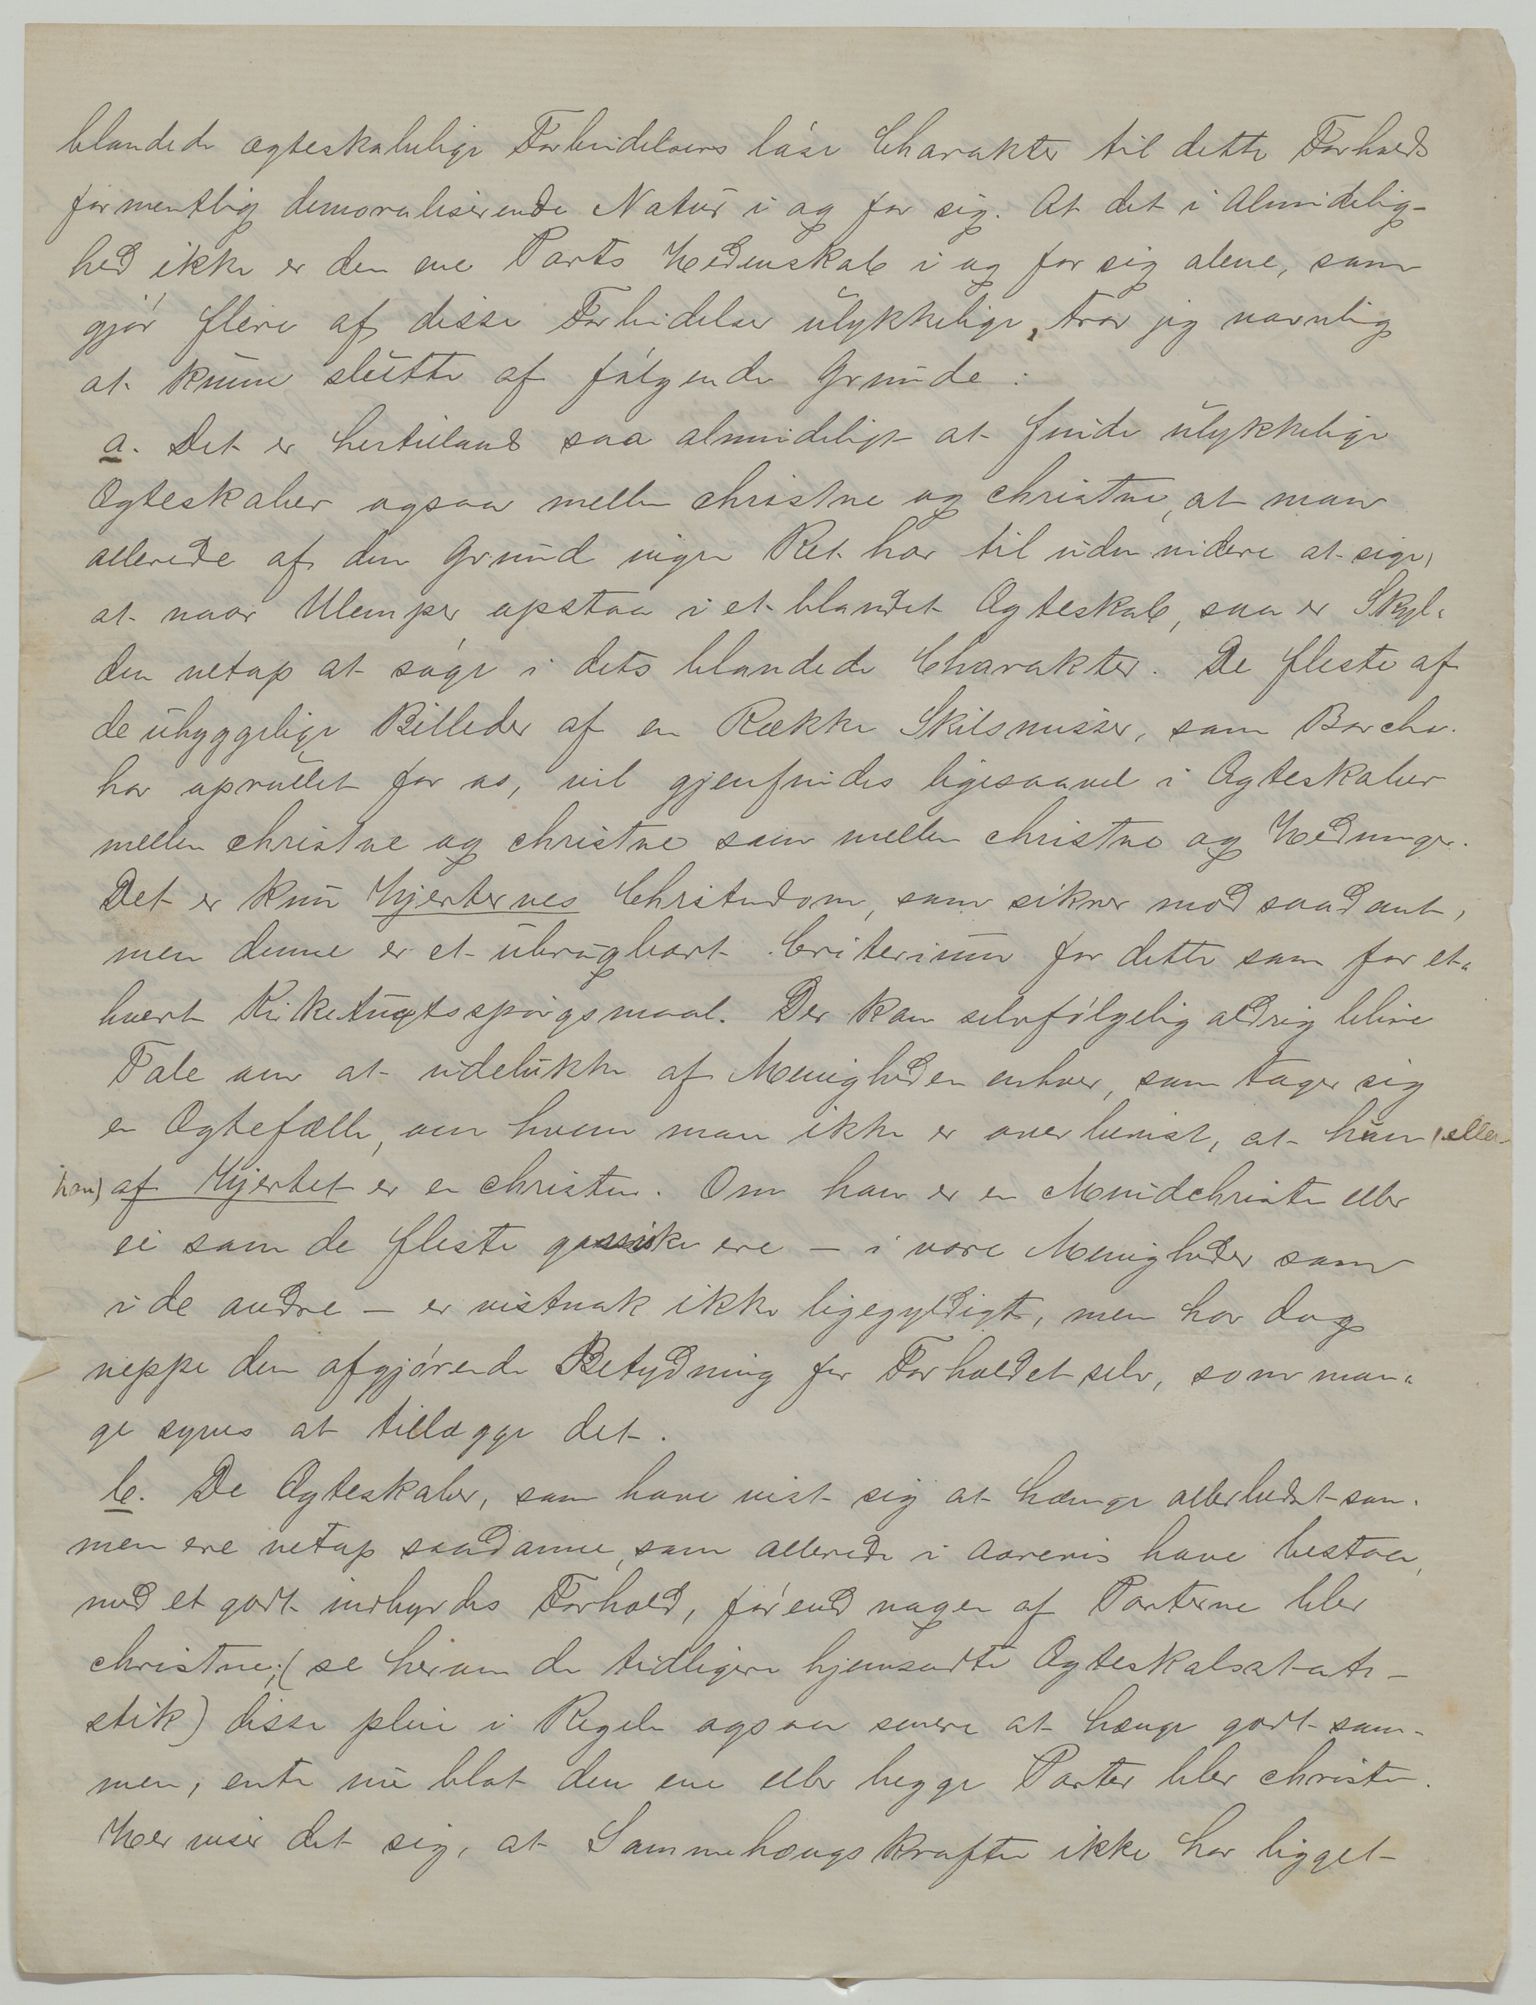 blandede ægteskabelige Forbindelsers løse Charakter til dette Forholds
formentlig demoraliserende Natur i og for sig. At det i Almindelig-
hed ikke er den ene Parts Hedenskab i og for sig alene, som
gjør flere af disse Forbindelser ulykkelige, tror jeg navnlig
at kunne slutte af følgende Grunde:
a. Det er hertillands saa almindeligt at finde ulykkelige
Ægteskaber ogsaa mellem christne og christne, at man
allerede af den Grund ingen Ret har til uden videre at sige,
at naar Ulemper opstaa i et blandet Ægteskab, saa er Skyl-
den netop at søge i dets blandede Charakter. De fleste af
de uhyggelige Billeder af en Række Skilsmisser, som Borchgr.
har oprullet for os, vil gjenfindes ligesaavel i Ægteskaber
mellem christne og christne som mellem christne og Hedninger.
Det er kun Hjerternes Christendom, som sikrer mod saadant,
men denne er et ubrugbart Criterium for dette som for et-
hvert Kirketugtsspørgsmaal. Der kan selvfølgelig aldrig blive
Tale om at udelukke af Menigheden enhver, som tager sig
en Ægtefælle, om hvem man ikke er overbevist, at hun (eller
han) af Hjertet er en christen. Om han er en Mundchristen eller
ei som de fleste ganske ere – i vore Menigheder som
i de andre – er vistnok ikke ligegyldigt, men har dog
neppe den afgjørende Betydning for Forholdet selv, som man-
ge synes at tillægge det.
b. De Ægteskaber, som have vist sig at hænge allerbedst sam-
men ere netop saadanne, som allerede i Aarevis have bestaaet,
med et godt indbyrdes Forhold, førend nogen af Parterne blev
christne; (se herom de tidligere hjemsendte Ægteskabsstati-
stik) disse pleie i Regelen ogsaa senere at hænge godt sam-
men, enten nu blot den ene eller begge Parter blev christen.
Her viser det sig, at Sammenhængskraften ikke har ligget